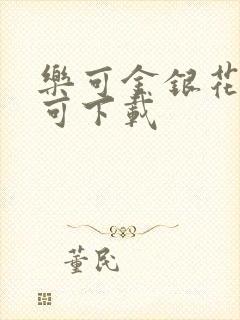 樂可金銀花
可下載
董民